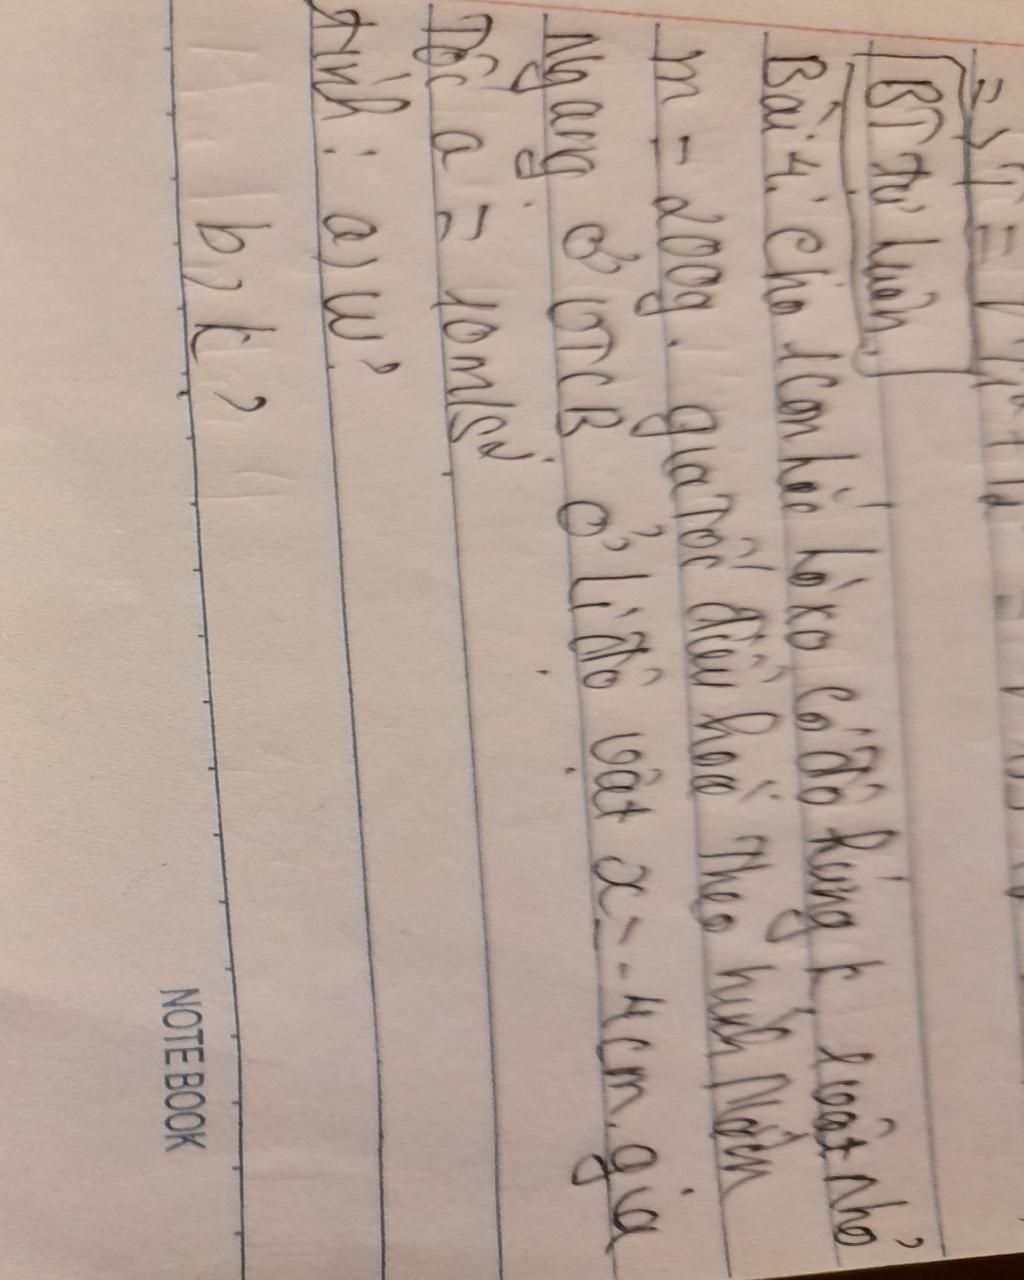 BT tự luận
Bài 1: Cho 1 con lắc lò xo có độ cứng k, 1 vật nhỏ
m = 200g. gia tốc điều hoà Theo hình Nằm
Ngang. ở VTCB ở li độ vật x = -4cm. gia
Tốc a = 10m/s².
tính: a) ω?
b, k?
NOTE BOOK